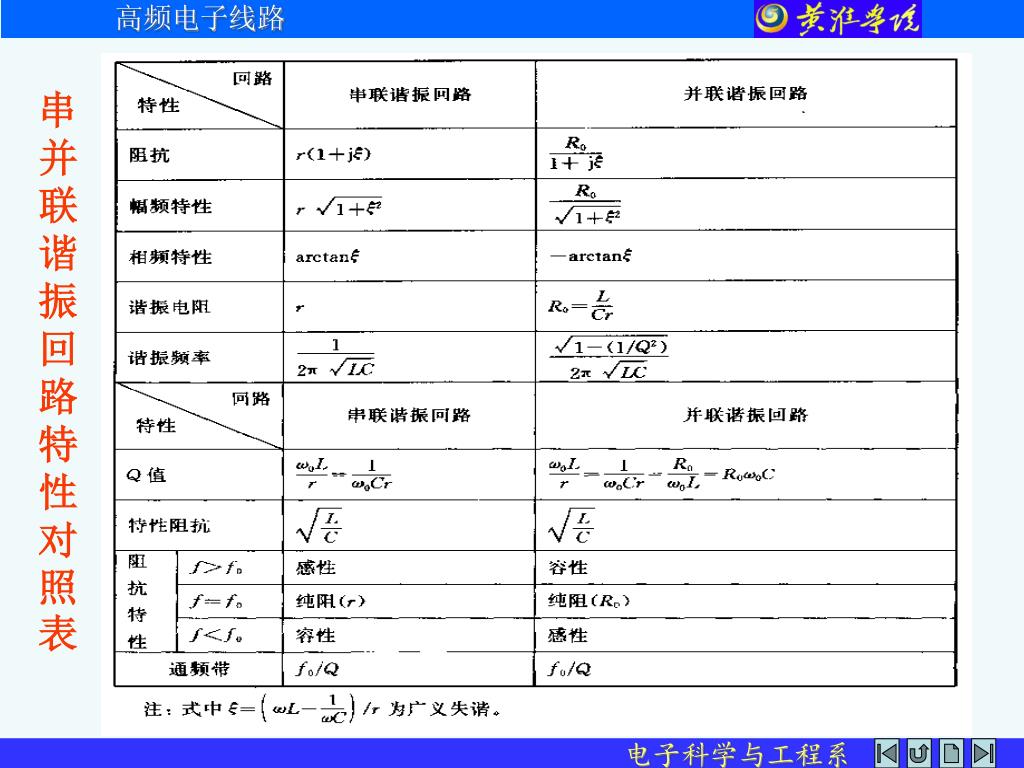 高频电子线路
黄淮学院
串并联谐振回路特性对照表
回路
特性 串联谐振回路 并联谐振回路
阻抗 r(1+jξ) R₀/(1+jξ)
幅频特性 r√(1+ξ²) R₀/√(1+ξ²)
相频特性 arctanξ −arctanξ
谐振电阻 r R₀=L/(Cr)
谐振频率 1/(2π√(LC)) √(1−(1/Q²))/(2π√(LC))
回路
特性 串联谐振回路 并联谐振回路
Q 值 ω₀L/r=1/(ω₀Cr) ω₀L/r=1/(ω₀Cr)=R₀/(ω₀L)=R₀ω₀C
特性阻抗 √(L/C) √(L/C)
阻抗特性 f>f₀ 感性 容性
f=f₀ 纯阻(r) 纯阻(R₀)
f<f₀ 容性 感性
通频带 f₀/Q f₀/Q
注：式中 ξ=(ωL−1/(ωC))/r 为广义失谐。
电子科学与工程系